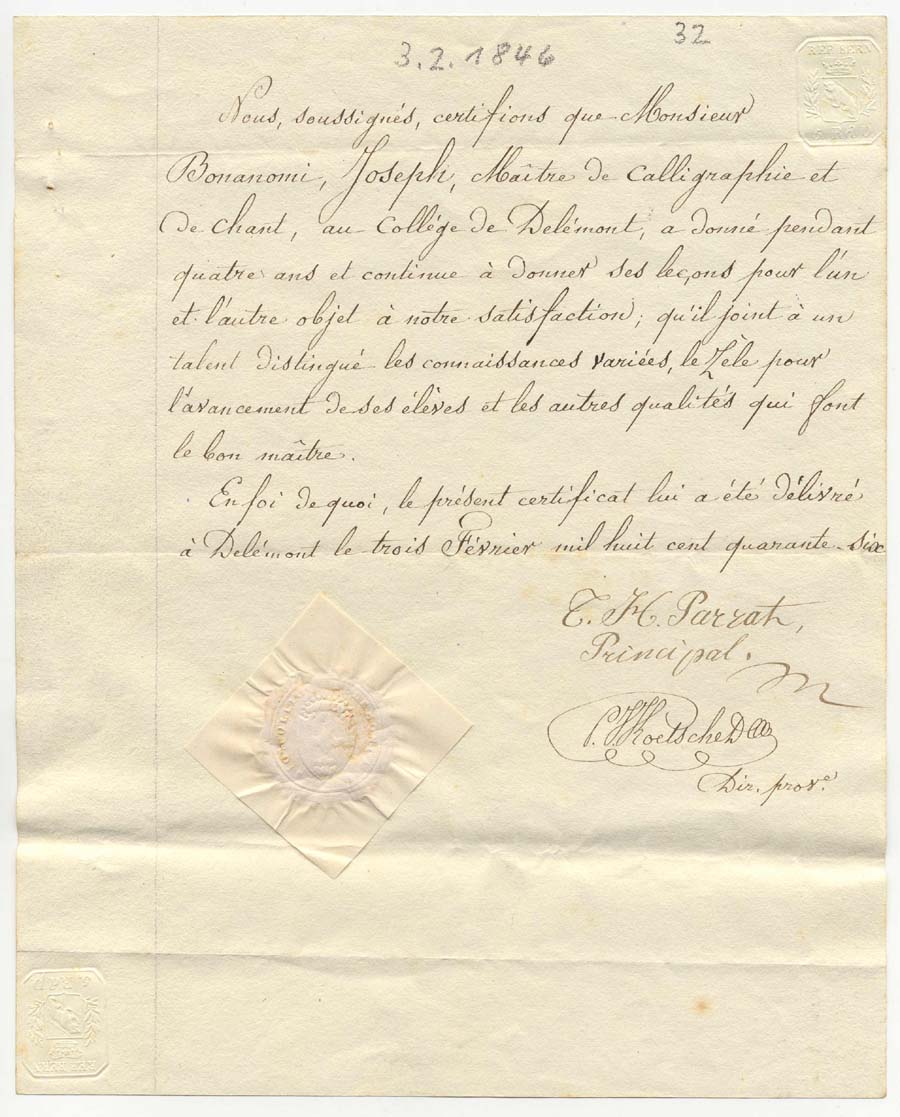 32
3.2.1846
REP BERN
Nous, soussignés, certifions que Monsieur
Bonanomi, Joseph, Maître de Calligraphie et
de chant, au Collége de Delémont, a donné pendant
quatre ans et continue à donner ses leçons pour l'un
et l'autre objet à notre satisfaction; qu'il joint à un
talent distingué les connaissances variées, le Zèle pour
l'avancement de ses élèves et les autres qualités qui font
le bon maître.
En foi de quoi, le présent certificat lui a été délivré
à Delémont le trois Février mil huit cent quarante-six
T. H. Parrat,
Principal.
Koetschet
Dir. prov.e
REP BERN